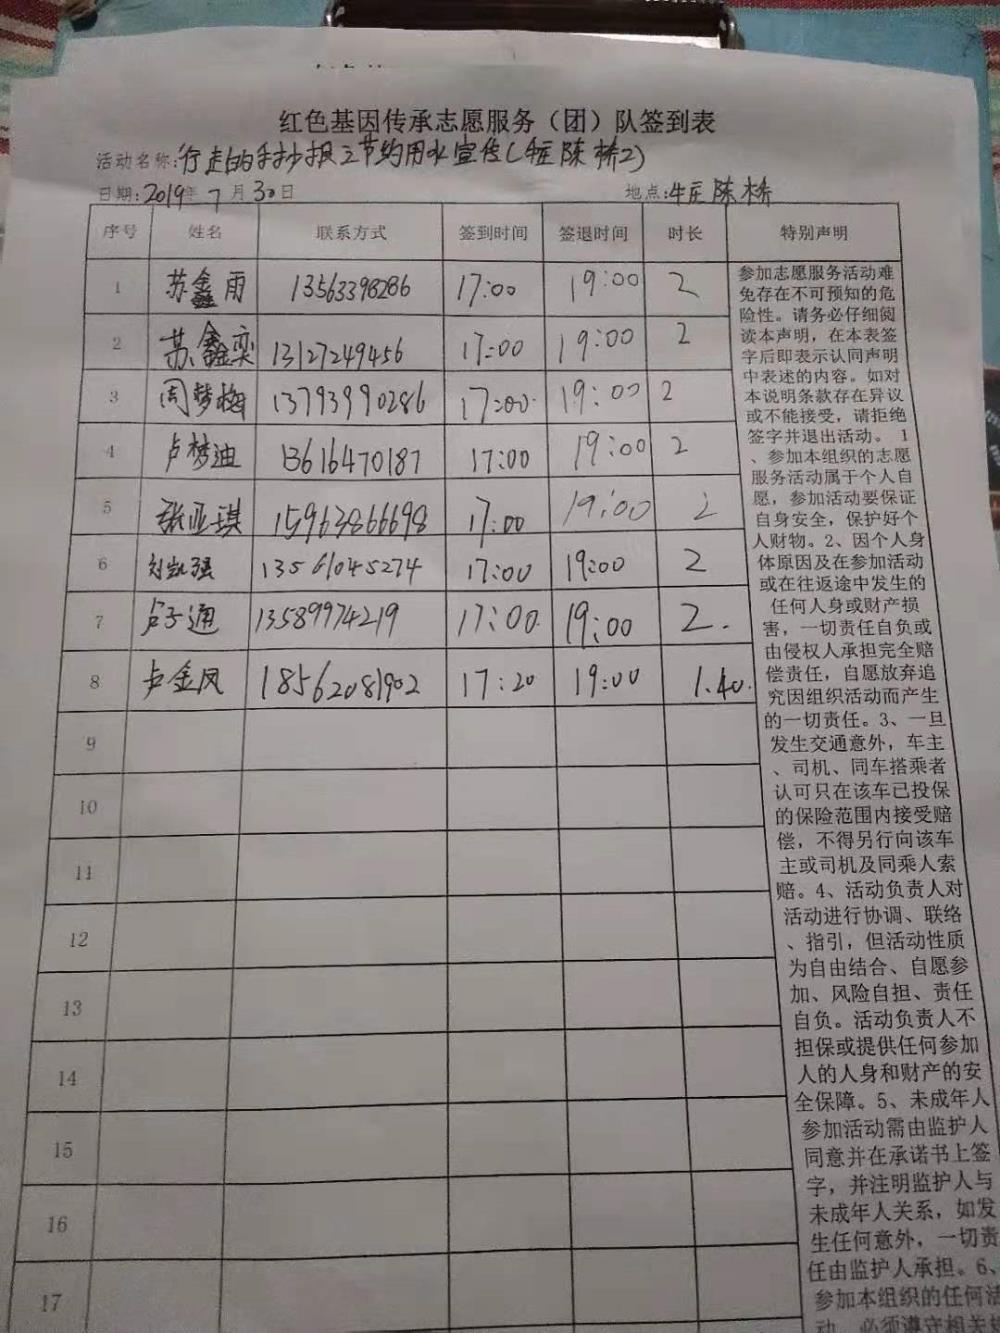 红色基因传承志愿服务（团）队签到表
活动名称:行走的手抄报之节约用水宣传(牛庄陈桥2)
日期:2019年7月30日 地点:牛庄陈桥
序号 姓名 联系方式 签到时间 签退时间 时长 特别声明
1 苏鑫雨 13563398286 17:00 19:00 2
2 苏鑫奕 13127249456 17:00 19:00 2
3 周梦梅 13793990286 17:00 19:00 2
4 卢梦迪 13616470187 17:00 19:00 2
5 张亚琪 15963866698 17:00 19:00 2
6 刘凯强 13561045274 17:00 19:00 2
7 卢子通 13589974219 17:00 19:00 2.
8 卢金凤 18562081902 17:20 19:00 1.40.
9
10
11
12
13
14
15
16
17
参加志愿服务活动难
免存在不可预知的危
险性。请务必仔细阅
读本声明，在本表签
字后即表示认同声明
中表述的内容。如对
本说明条款存在异议
或不能接受，请拒绝
签字并退出活动。 1
、参加本组织的志愿
服务活动属于个人自
愿，参加活动要保证
自身安全，保护好个
人财物。2、因个人身
体原因及在参加活动
或在往返途中发生的
任何人身或财产损
害，一切责任自负或
由侵权人承担完全赔
偿责任，自愿放弃追
究因组织活动而产生
的一切责任。3、一旦
发生交通意外，车主
、司机、同车搭乘者
认可只在该车已投保
的保险范围内接受赔
偿，不得另行向该车
主或司机及同乘人索
赔。4、活动负责人对
活动进行协调、联络
、指引，但活动性质
为自由结合、自愿参
加、风险自担、责任
自负。活动负责人不
担保或提供任何参加
人的人身和财产的安
全保障。5、未成年人
参加活动需由监护人
同意并在承诺书上签
字，并注明监护人与
未成年人关系，如发
生任何意外，一切责
任由监护人承担。6、
参加本组织的任何活
动，必须遵守相关